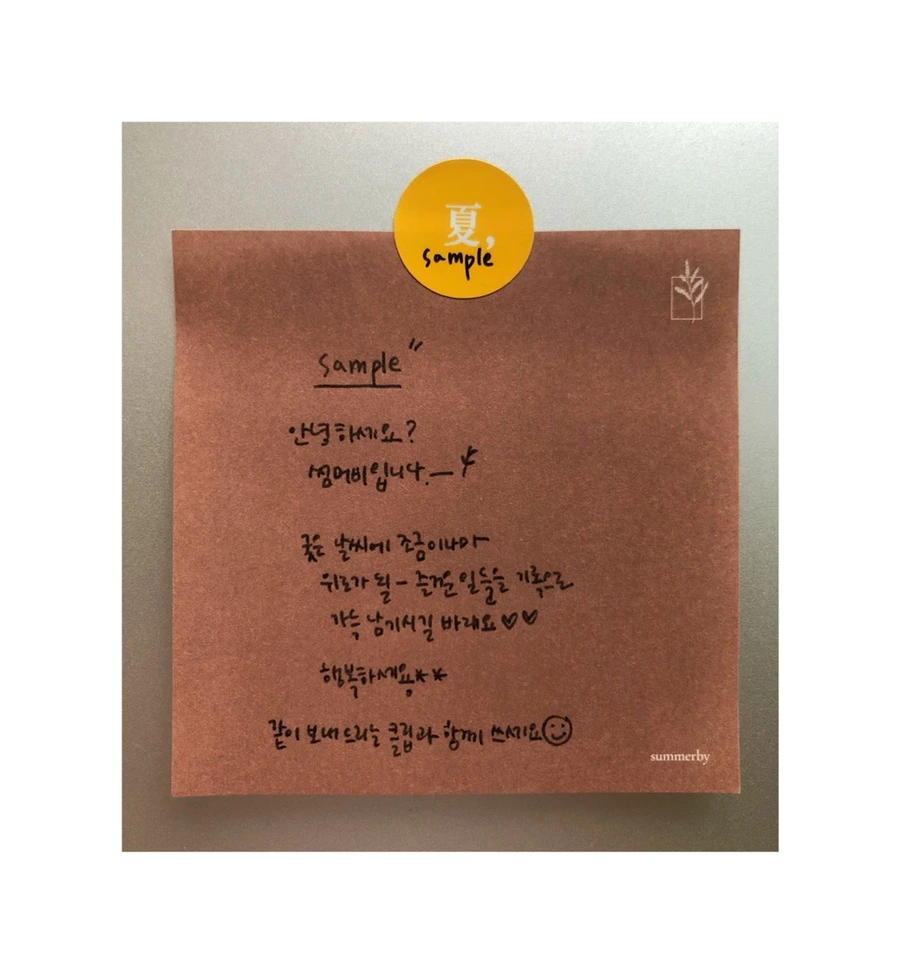 夏,
sample
sample"
안녕하세요?
썸머비입니다.—
궂은 날씨에 조금이나마
위로가 될 - 즐거운 일들을 기록으로
가득 남기시길 바래요♡♡
행복하세용**
같이 보내드리는 클립과 함께 쓰세요☺
summerby